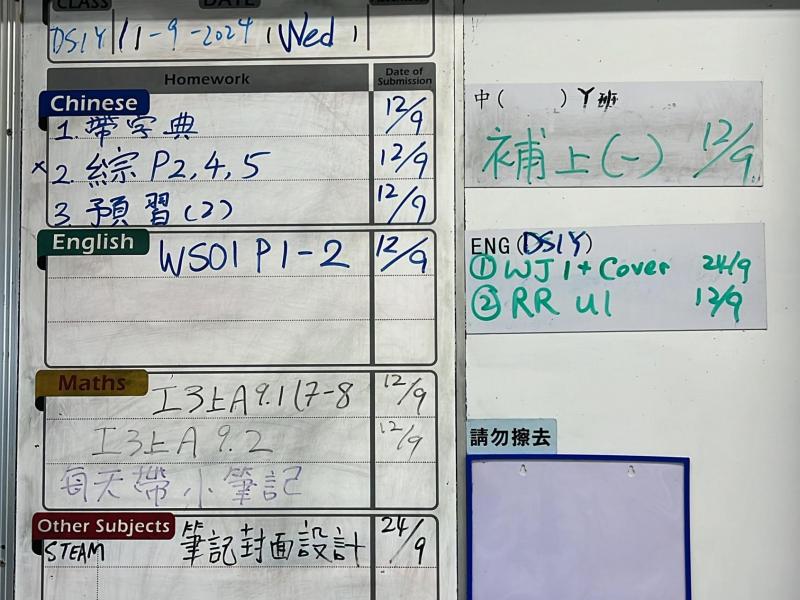 CLASS DATE
DS1Y 11-9-2024 Wed
Homework Date of Submission
Chinese
1. 帶字典 12/9
x 2. 綜 P2, 4, 5 12/9
3 預習 (2) 12/9
English
WS01 P1-2 12/9
Maths
工3上A 9.1 (7-8 12/9
工3上A 9.2 12/9
每天帶小筆記
Other Subjects
STEAM 筆記封面設計 24/9
中( )Y班
補上(一) 12/9
ENG(DS1Y)
① WJ 1 + Cover 24/9
② RR U1 12/9
請勿擦去